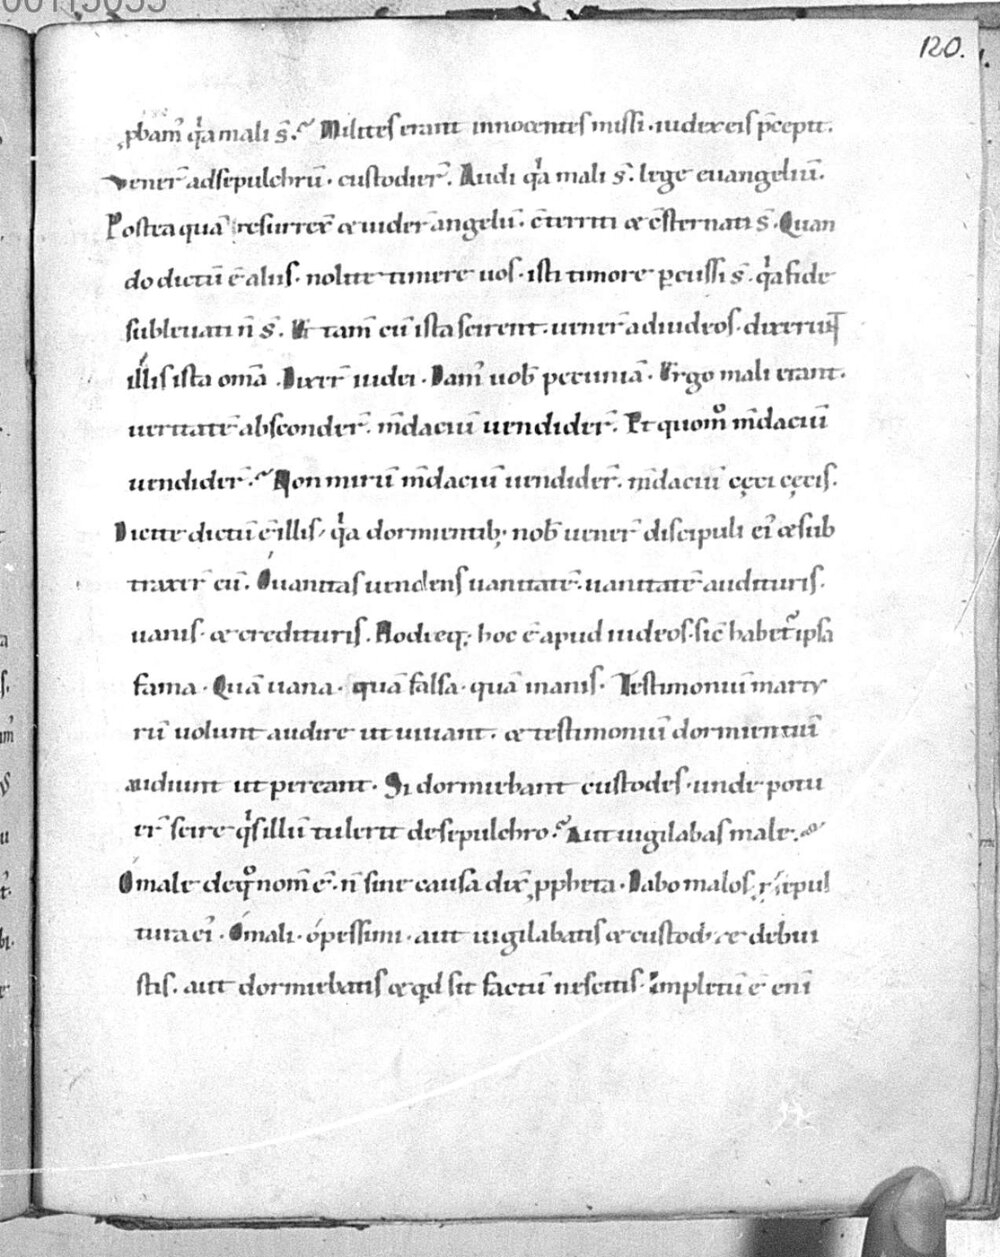 120.
ꝓbam᷒ qͥa mali s̄. Milites erant innocentes missi · iudex eis p̄cepit.
vener̄ ad sepulchrū · custodier̄. Audi qͥa mali s̄. lege euangeliū.
Postea quā resurrex̄ & uider̄ angelū · c̄territi & c̄sternati s̄. Quan
do dictū ē aliis · nolite timere uos · isti timore ꝑcussi s̄. qͥa fide
subleuati n̄ s̄. Et tam̄ cū ista scirent · uener̄ ad iudeos · dixerunt
illis ista om̄a. Dixer̄ iudei. Dam᷒ uob̄ pecuniā. Ergo mali erant.
ueritatē absconder̄. m̄daciū uendider̄. Et quom̊ m̄daciū
uendider̄. Non mirū m̄daciū uendider̄. m̄daciū cęci cęcis.
Dicite dictū ē illis, qͥa dormientib; nob̄ uener̄ discipuli ei᷒ & sub
traxer̄ eū. O uanitas uendens uanitatē · uanitatē audituris.
uanis · & credituris. Hodieq; hoc ē apud iudeos · sic̄ habet᷑ ipsa
fama. Quā uana · quā falsa · quā inanis. Testimoniū marty
rū uolunt audire ut uiuant. & testimoniū dormientiū
audiunt ut pereant. Si dormiebant custodes · unde potu
er̄ scire qͥs illū tulerit de sepulchro. Aut uigilabas male.
O male de qͦ nom̄ ē. n̄ sine causa dix̄ ꝓpheta. Dabo malos ꝓ sepul
tura ei᷒. O mali · o pessimi · aut uigilabatis & custod. re debui
stis. aut dormiebatis & qd sit factū nescitis. Impletū ē eni